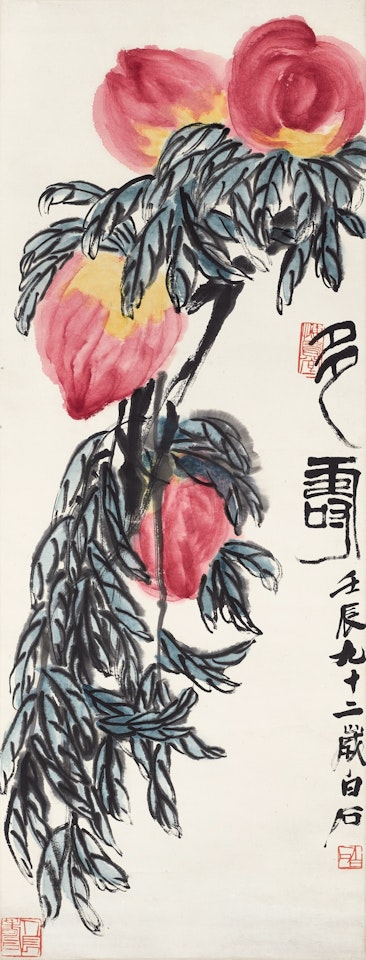 多壽
壬辰九十二歲白石